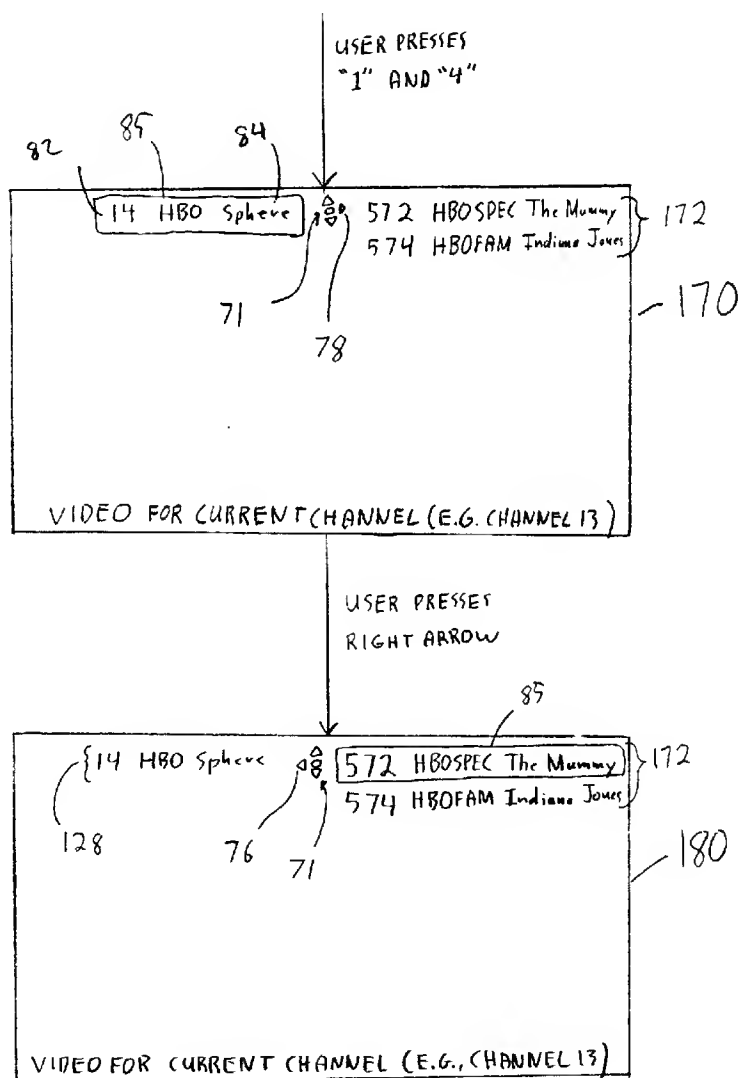 USER PRESSES
"1" AND "4"
82
85
84
14 HBO Sphere
572 HBOSPEC The Mummy
172
574 HBOFAM Indiana Jones
71
78
170
VIDEO FOR CURRENT CHANNEL (E.G. CHANNEL 13)
USER PRESSES
RIGHT ARROW
85
14 HBO Sphere
572 HBOSPEC The Mummy
172
574 HBOFAM Indiana Jones
128
76
71
180
VIDEO FOR CURRENT CHANNEL (E.G., CHANNEL 13)